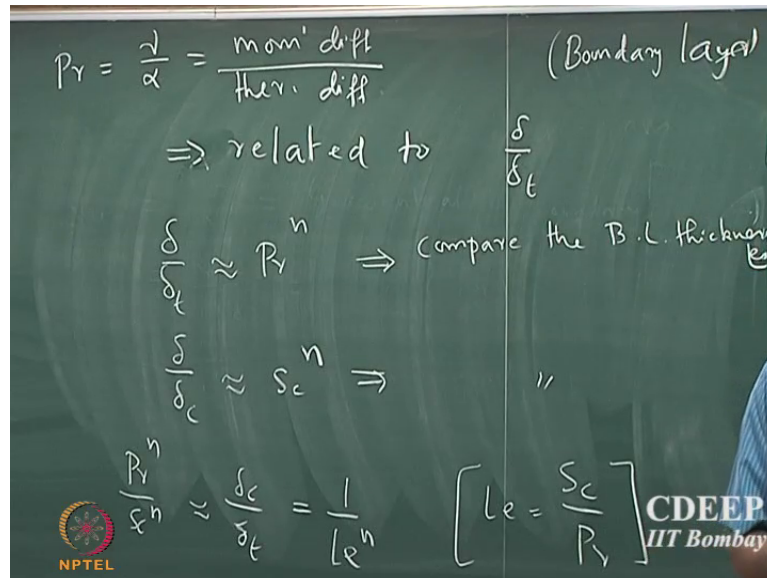 Pr = ν/α = mom' diff / ther. diff (Boundary layer)
⇒ related to δ/δt
δ/δt ≈ Pr^n ⇒ compare the B.L. thicknesses
δ/δc ≈ Sc^n ⇒ "
Pr^n/Sc^n ≈ δc/δt = 1/Le^n [Le = Sc/Pr]
CDEEP
IIT Bombay
NPTEL